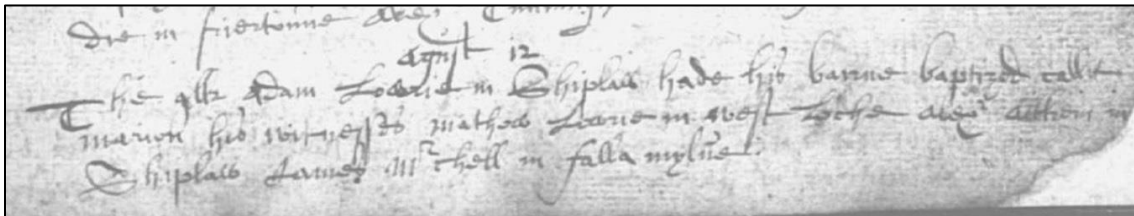 die in friertonne Alexr Cuningh
Agust 12
The qlk Adam Lowrie in Shiplaw hade his barine baptized callit
marion his witnesses mathew Lowrie in west Loche Alexr Aitken in
Shiplaw James Mitchell in falla mylne